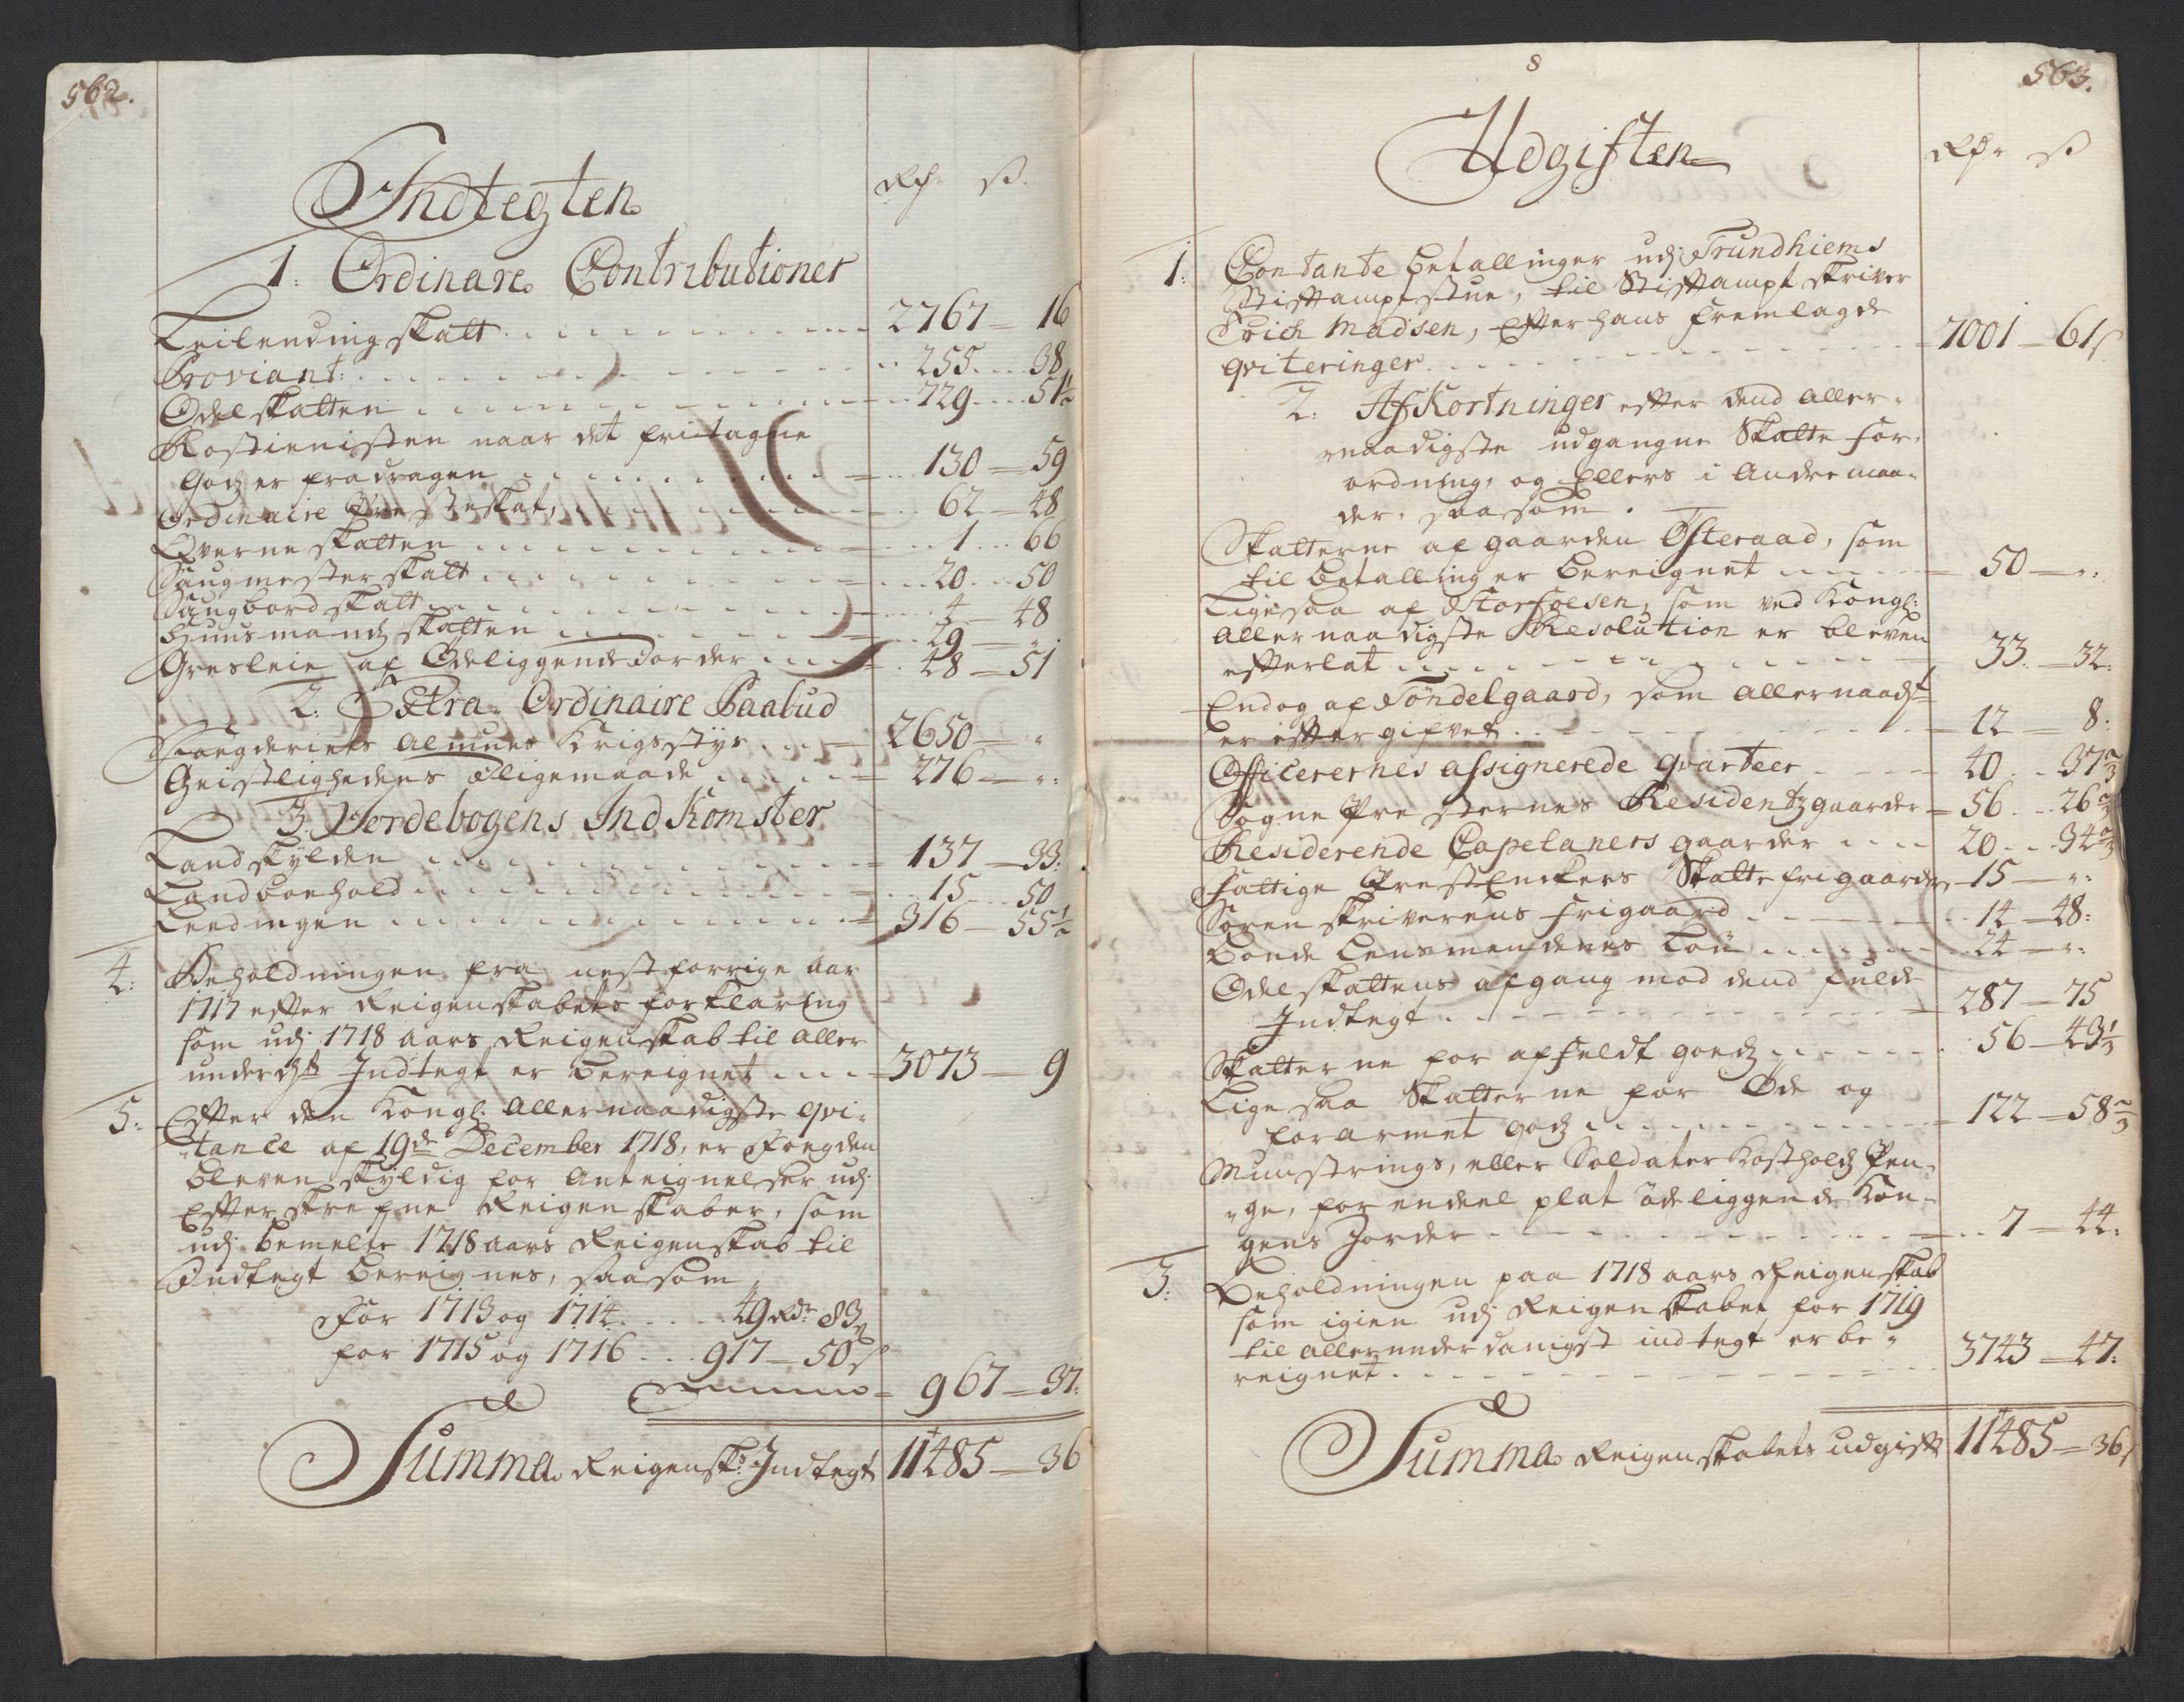 562.
Indtegten
Rdr ß.
1. Ordinare Contributioner
Leilendingskatt . . . 2767 — 16
Proviant: . . . 255 . . 38
Odelskatten . . . 729 . . 51½
Rostienisten naar det fritagne
Godz er fradragen . . . 130 — 59
Ordinaire Presteskat, . . . 62 — 48
Qverneskatten . . . 1 . . 66
Saugmesterskatt . . . 20 . . 50
Saugbordskatt . . . 4 — 48
Huusmandz skatten . . . 29 — „
Gresleie af Ödeliggende Jorder . . . 48 — 51
2. Extra Ordinaire Paabud
Fougderiets Almues Krigsstyr . . . 2650 — „
Geistlighedens Lligemaade . . . 276 — „:
3. Jordebogens IndKomster
Landskylden . . . 137 — 33:
Landboehold . . . 15 . . 50
Leedingen . . . 316 — 55½
4: Beholdningen fra nestforrige Aar
1717 efter Reigenskabets forklaring
som udj 1718 aars Reigenskab til aller
underdst Indtegt er bereignet . . . 3073 — 9
5: Efter den Kongl: Allernaadigste qvi-
tance af 19de December 1718, er Fougden
bleven skyldig for Anteignelser udj
Efterskrefne Reigenskaber, som
udj bemelte 1718 aars Reigenskab til
Indtegt bereignes, saasom
For 1713 og 1714 . . . 49 Rdr 83
for 1715 og 1716 . . . 917 — 50 ß
967 — 37:
Summa Reigenskb: Indtegt 11485 — 36
8
563.
Udgiften
Rdr ß
1: Contante betallinger udj Trundhiems
Stiftamptstue, til Stiftamptskriver
Erich Madsen, Efter hans fremlagde
qviteringer . . . 7001 — 61ß
2: AfKortninger efter dend aller-
naadigste udgangne Skatte for-
ordning, og Ellers i Andre maa-
der, saasom.
Skatterne af gaarden Østeraad, som
til betalling er bereignet . . . 50 — „:
Ligesaa af Storfoesen, som ved Kongl:
allernaadigste Resolution er bleven
efterlat . . . 33. — 32:
Endog af Töndelgaard, som allernaadst
er eftergifvet . . . 12 — 8:
Officerernes assignerede qvarteer . . . 40 . . 37⅔
Sogne Presternes Residentzgaarder — 56 . . 26⅔
Residerende Capelaners gaarder . . . 20 . . 34⅔
Fattige PrestEnckers Skattefrigaarder, 15 — „:
Sorenskriverens frigaard . . . 14 — 48:
Bonde Lensmendenes Løn . . . 24 — „:
Odelskattens afgang mod dend fulde
Indtegt . . . 287 — 75
Skatterne for affeldt goedz . . . 56 — 43⅓
Ligesaa Skatterne for Øde og
forarmet godz . . . 122 — 58⅔
Munstrings, eller Soldater Kostholdz Pen-
„ge, for endeel plat ödeliggende Kon-
gens Jorder . . . 7 — 44:
3: Beholdningen paa 1718 aars Reigenskab
som igien udj Reigenskabet for 1719
til allerunderdanigst indtegt er be-
reignet . . . 3743 — 47:
Summa Reigenskabets udgift 11485 — 36ß